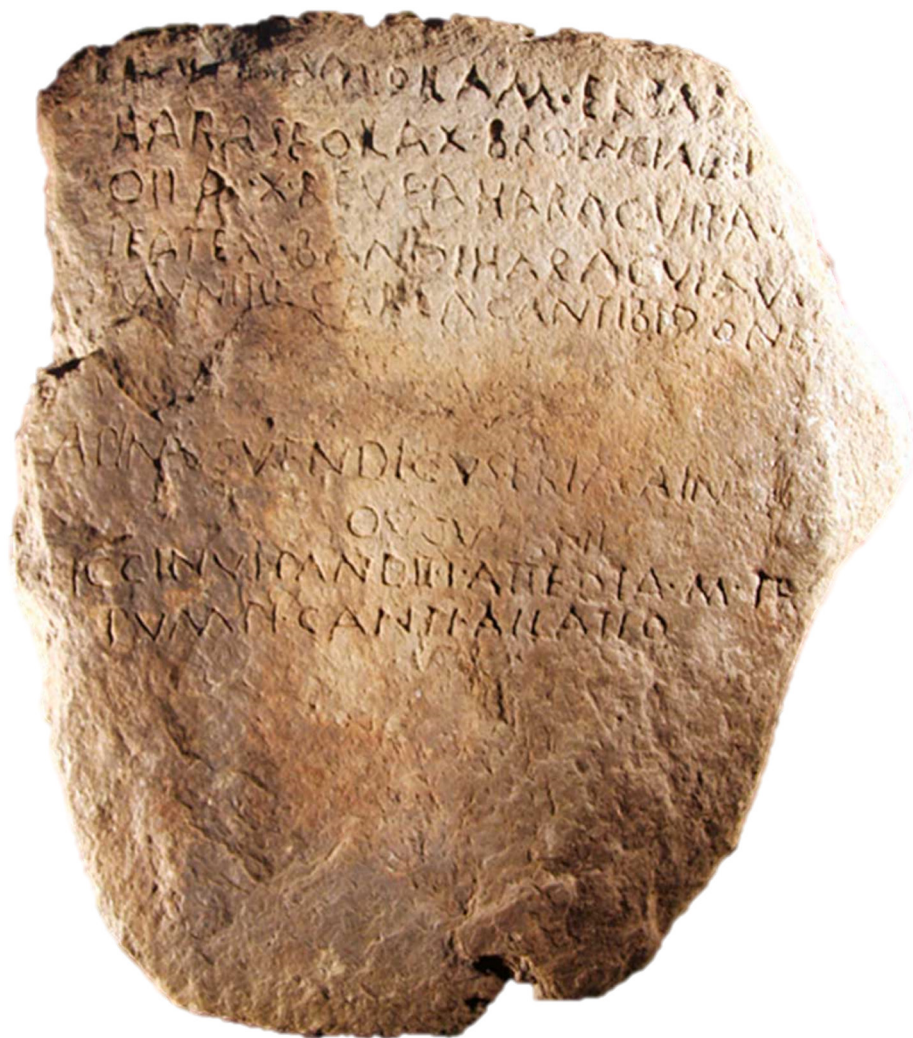 OILAM·ERBAM
HARASE OILA·X·BROENEIAE·H
OILA·X·REVE AHARACVI·TAV
IEATE·X·BANDI HARACVI AV
MVNITIE CARIA CANTIBIDONE
APINVS VENDICVS ERIACAINV
OVOVIANI
ICCINVI·PANDITI·ATTEDIA·M·TR
PVMPI·CANTI·AILATIO